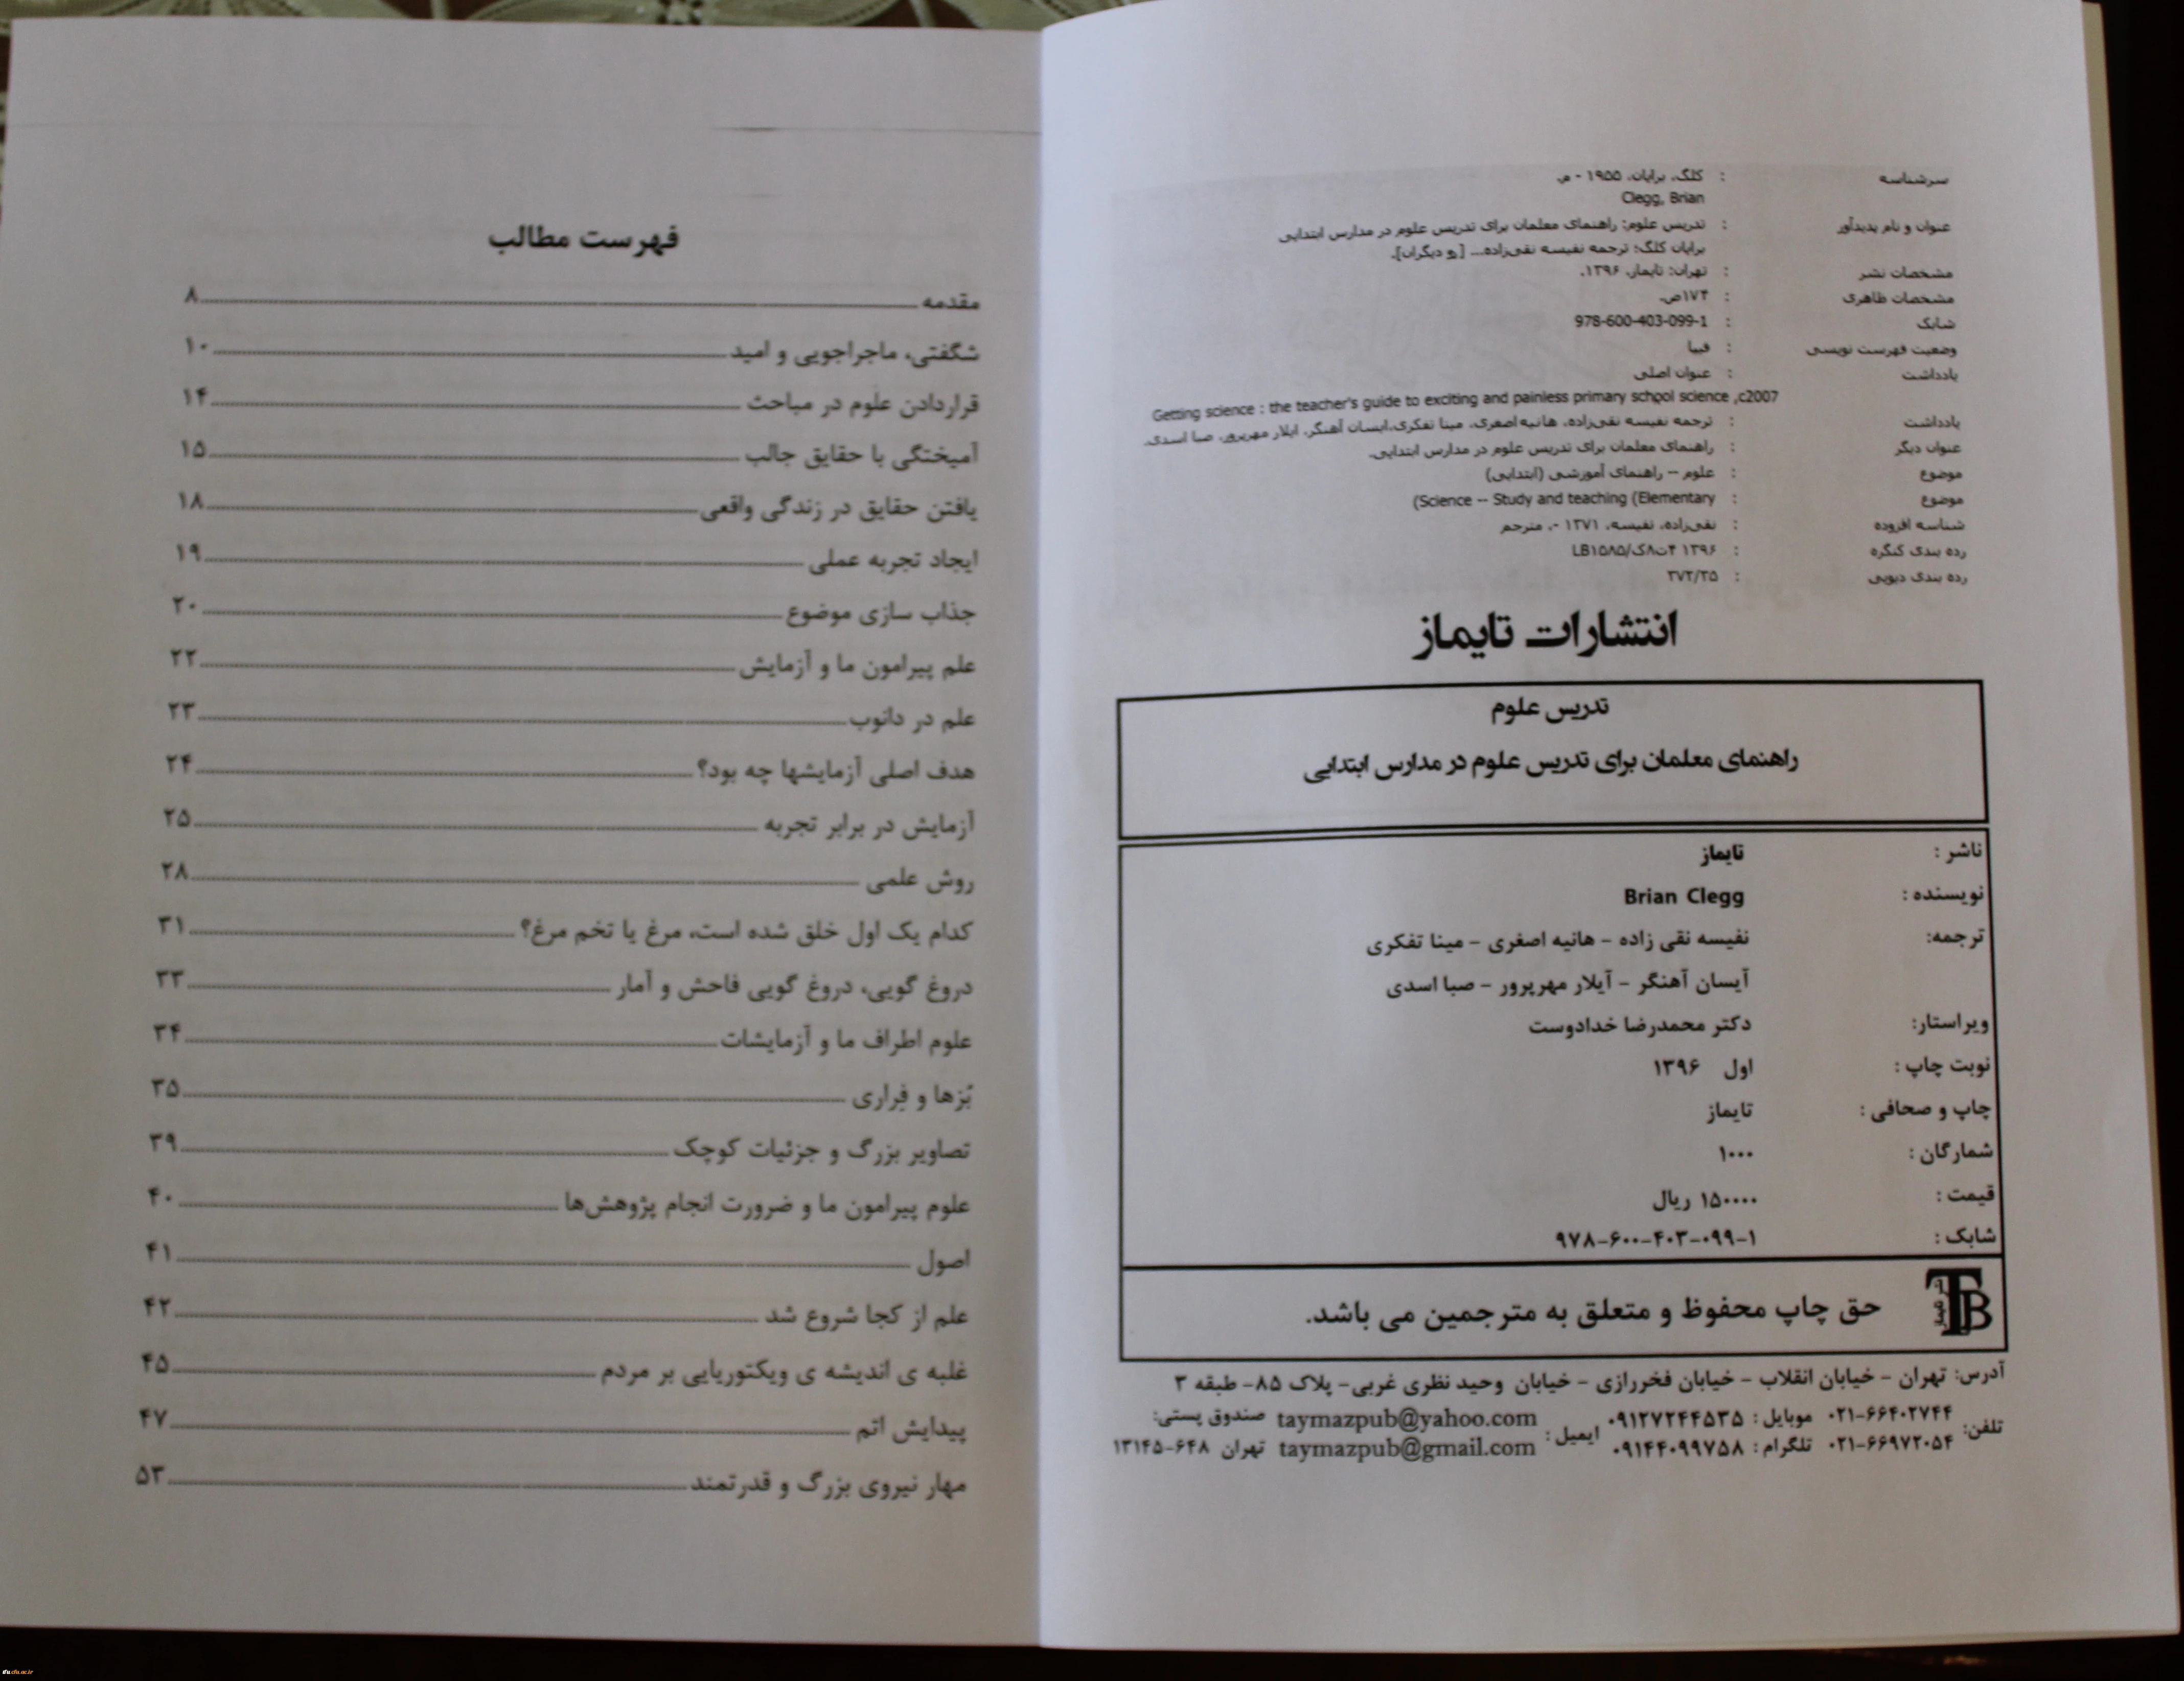 سرشناسه : کلگ، برایان، ۱۹۵۵ - م.
Clegg, Brian
عنوان و نام پدیدآور : تدریس علوم: راهنمای معلمان برای تدریس علوم در مدارس ابتدایی
برایان کلگ؛ ترجمه نفیسه نقی‌زاده... [و دیگران].
مشخصات نشر : تهران: تایماز، ۱۳۹۶.
مشخصات ظاهری : ۱۷۴ص.
شابک : 978-600-403-099-1
وضعیت فهرست نویسی : فیپا
یادداشت : عنوان اصلی
Getting science : the teacher's guide to exciting and painless primary school science ,c2007
یادداشت : ترجمه نفیسه نقی‌زاده، هانیه اصغری، مینا تفکری،ایسان آهنگر، ایلار مهرپرور، صبا اسدی.
عنوان دیگر : راهنمای معلمان برای تدریس علوم در مدارس ابتدایی.
موضوع : علوم -- راهنمای آموزشی (ابتدایی)
موضوع : Science -- Study and teaching (Elementary)
شناسه افزوده : نقی‌زاده، نفیسه، ۱۳۷۱ -، مترجم
رده بندی کنگره : ۱۳۹۶ ۴ت۸ک/LB۱۵۸۵
رده بندی دیویی : ۳۷۲/۳۵
انتشارات تایماز
تدریس علوم
راهنمای معلمان برای تدریس علوم در مدارس ابتدایی
ناشر : تایماز
نویسنده : Brian Clegg
ترجمه: نفیسه نقی زاده - هانیه اصغری - مینا تفکری
آیسان آهنگر - آیلار مهرپرور - صبا اسدی
ویراستار: دکتر محمدرضا خدادوست
نوبت چاپ : اول ۱۳۹۶
چاپ و صحافی : تایماز
شمارگان : ۱۰۰۰
قیمت : ۱۵۰۰۰۰ ریال
شابک : ۹۷۸-۶۰۰-۴۰۳-۰۹۹-۱
حق چاپ محفوظ و متعلق به مترجمین می باشد.
آدرس: تهران - خیابان انقلاب - خیابان فخررازی - خیابان وحید نظری غربی- پلاک ۸۵- طبقه ۳
تلفن: ۰۲۱-۶۶۴۰۲۷۴۴ موبایل : ۰۹۱۲۷۲۴۴۵۳۵ ایمیل : taymazpub@yahoo.com صندوق پستی:
۰۲۱-۶۶۹۷۲۰۵۴ تلگرام : ۰۹۱۴۴۰۹۹۷۵۸ taymazpub@gmail.com تهران ۶۴۸-۱۳۱۴۵
فهرست مطالب
مقدمه ۸
شگفتی، ماجراجویی و امید ۱۰
قراردادن علوم در مباحث ۱۴
آمیختگی با حقایق جالب ۱۵
یافتن حقایق در زندگی واقعی ۱۸
ایجاد تجربه عملی ۱۹
جذاب سازی موضوع ۲۰
علم پیرامون ما و آزمایش ۲۲
علم در دانوب ۲۳
هدف اصلی آزمایشها چه بود؟ ۲۴
آزمایش در برابر تجربه ۲۵
روش علمی ۲۸
کدام یک اول خلق شده است، مرغ یا تخم مرغ؟ ۳۱
دروغ گویی، دروغ گویی فاحش و آمار ۳۳
علوم اطراف ما و آزمایشات ۳۴
بُزها و فِراری ۳۵
تصاویر بزرگ و جزئیات کوچک ۳۹
علوم پیرامون ما و ضرورت انجام پژوهش‌ها ۴۰
اصول ۴۱
علم از کجا شروع شد ۴۲
غلبه ی اندیشه ی ویکتوریایی بر مردم ۴۵
پیدایش اتم ۴۷
مهار نیروی بزرگ و قدرتمند ۵۳